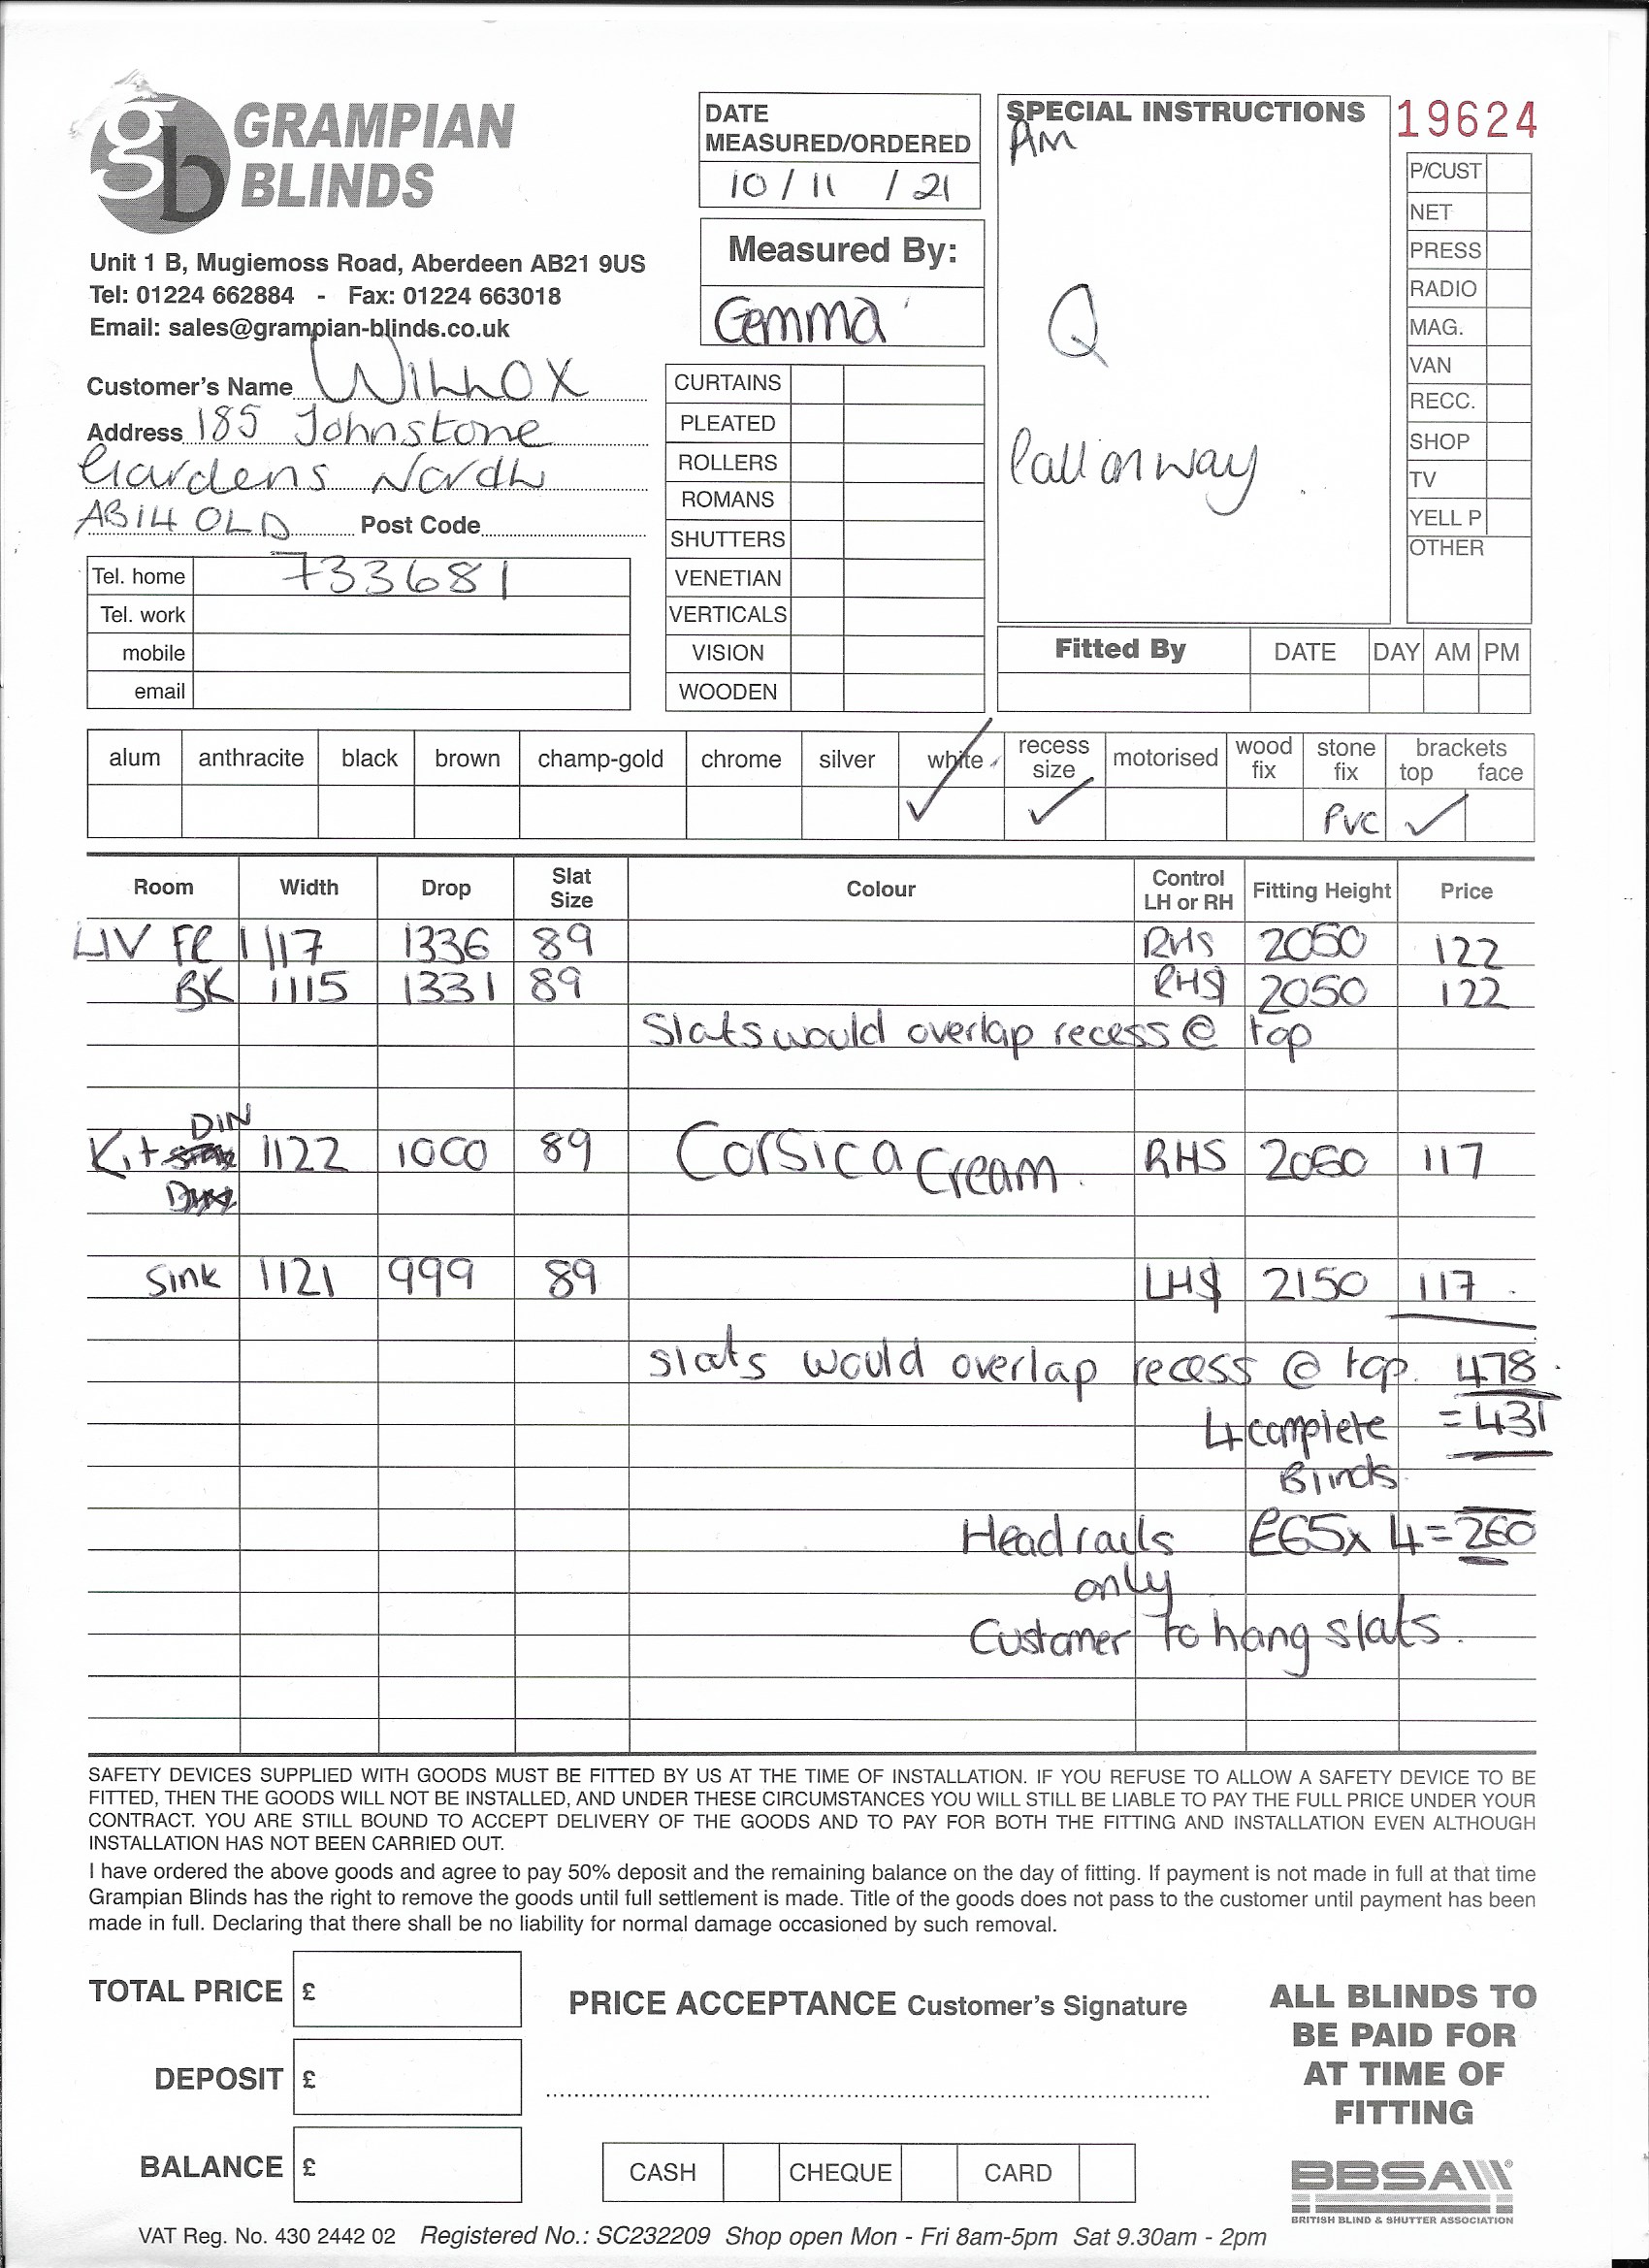 gb GRAMPIAN
BLINDS
Unit 1 B, Mugiemoss Road, Aberdeen AB21 9US
Tel: 01224 662884 - Fax: 01224 663018
Email: sales@grampian-blinds.co.uk
Customer's Name Willox
Address 185 Johnstone
Gardens North
AB14 0LD Post Code
Tel. home 733681
Tel. work
mobile
email
DATE
MEASURED/ORDERED
10 / 11 / 21
Measured By:
Gemma
CURTAINS
PLEATED
ROLLERS
ROMANS
SHUTTERS
VENETIAN
VERTICALS
VISION
WOODEN
SPECIAL INSTRUCTIONS
AM
Q
Call on way
19624
P/CUST
NET
PRESS
RADIO
MAG.
VAN
RECC.
SHOP
TV
YELL P
OTHER
Fitted By DATE DAY AM PM
alum anthracite black brown champ-gold chrome silver white recess size motorised wood fix stone fix brackets top face
✓ ✓ PVC ✓
Room Width Drop Slat Size Colour Control LH or RH Fitting Height Price
LIV FR 1117 1336 89 RHS 2050 122
BK 1115 1331 89 RHS 2050 122
Slats would overlap recess @ top
DIN
Kit 1122 1000 89 Corsica Cream RHS 2050 117
Sink 1121 999 89 LHS 2150 117
slats would overlap recess @ top. 478
4 complete = 431
Blinds
Headrails £65 x 4 = 260
only
Customer to hang slats.
SAFETY DEVICES SUPPLIED WITH GOODS MUST BE FITTED BY US AT THE TIME OF INSTALLATION. IF YOU REFUSE TO ALLOW A SAFETY DEVICE TO BE
FITTED, THEN THE GOODS WILL NOT BE INSTALLED, AND UNDER THESE CIRCUMSTANCES YOU WILL STILL BE LIABLE TO PAY THE FULL PRICE UNDER YOUR
CONTRACT. YOU ARE STILL BOUND TO ACCEPT DELIVERY OF THE GOODS AND TO PAY FOR BOTH THE FITTING AND INSTALLATION EVEN ALTHOUGH
INSTALLATION HAS NOT BEEN CARRIED OUT.
I have ordered the above goods and agree to pay 50% deposit and the remaining balance on the day of fitting. If payment is not made in full at that time
Grampian Blinds has the right to remove the goods until full settlement is made. Title of the goods does not pass to the customer until payment has been
made in full. Declaring that there shall be no liability for normal damage occasioned by such removal.
TOTAL PRICE £
DEPOSIT £
BALANCE £
PRICE ACCEPTANCE Customer's Signature
CASH CHEQUE CARD
ALL BLINDS TO
BE PAID FOR
AT TIME OF
FITTING
BBSA
BRITISH BLIND & SHUTTER ASSOCIATION
VAT Reg. No. 430 2442 02 Registered No.: SC232209 Shop open Mon - Fri 8am-5pm Sat 9.30am - 2pm